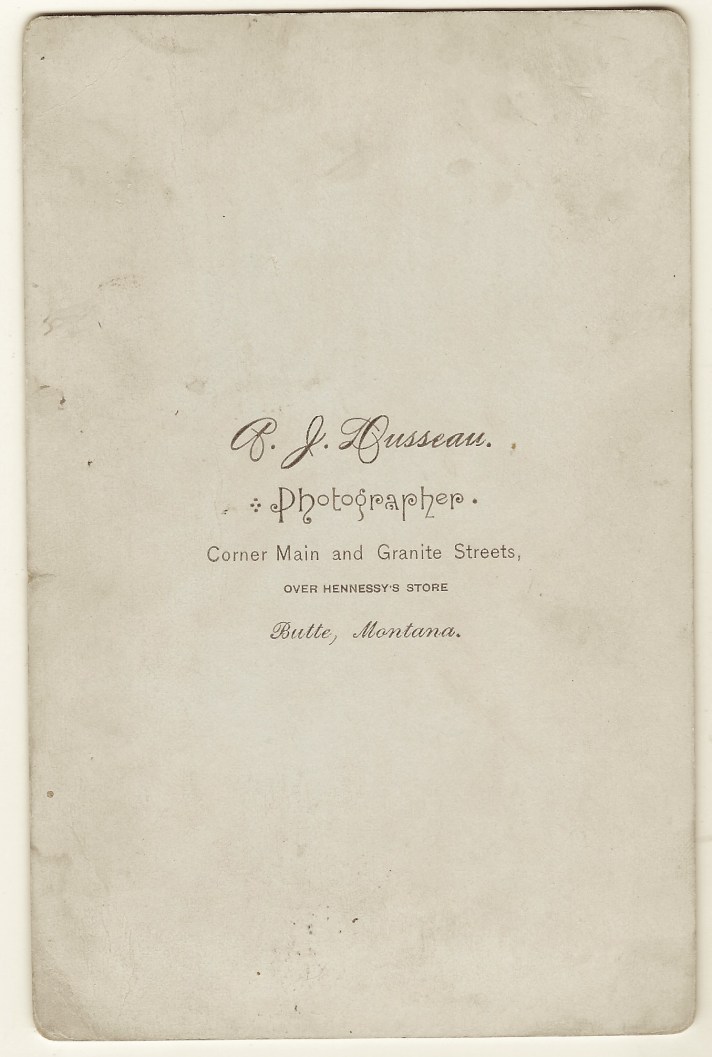 A. J. Dusseau.
Photographer.
Corner Main and Granite Streets,
OVER HENNESSY'S STORE
Butte, Montana.